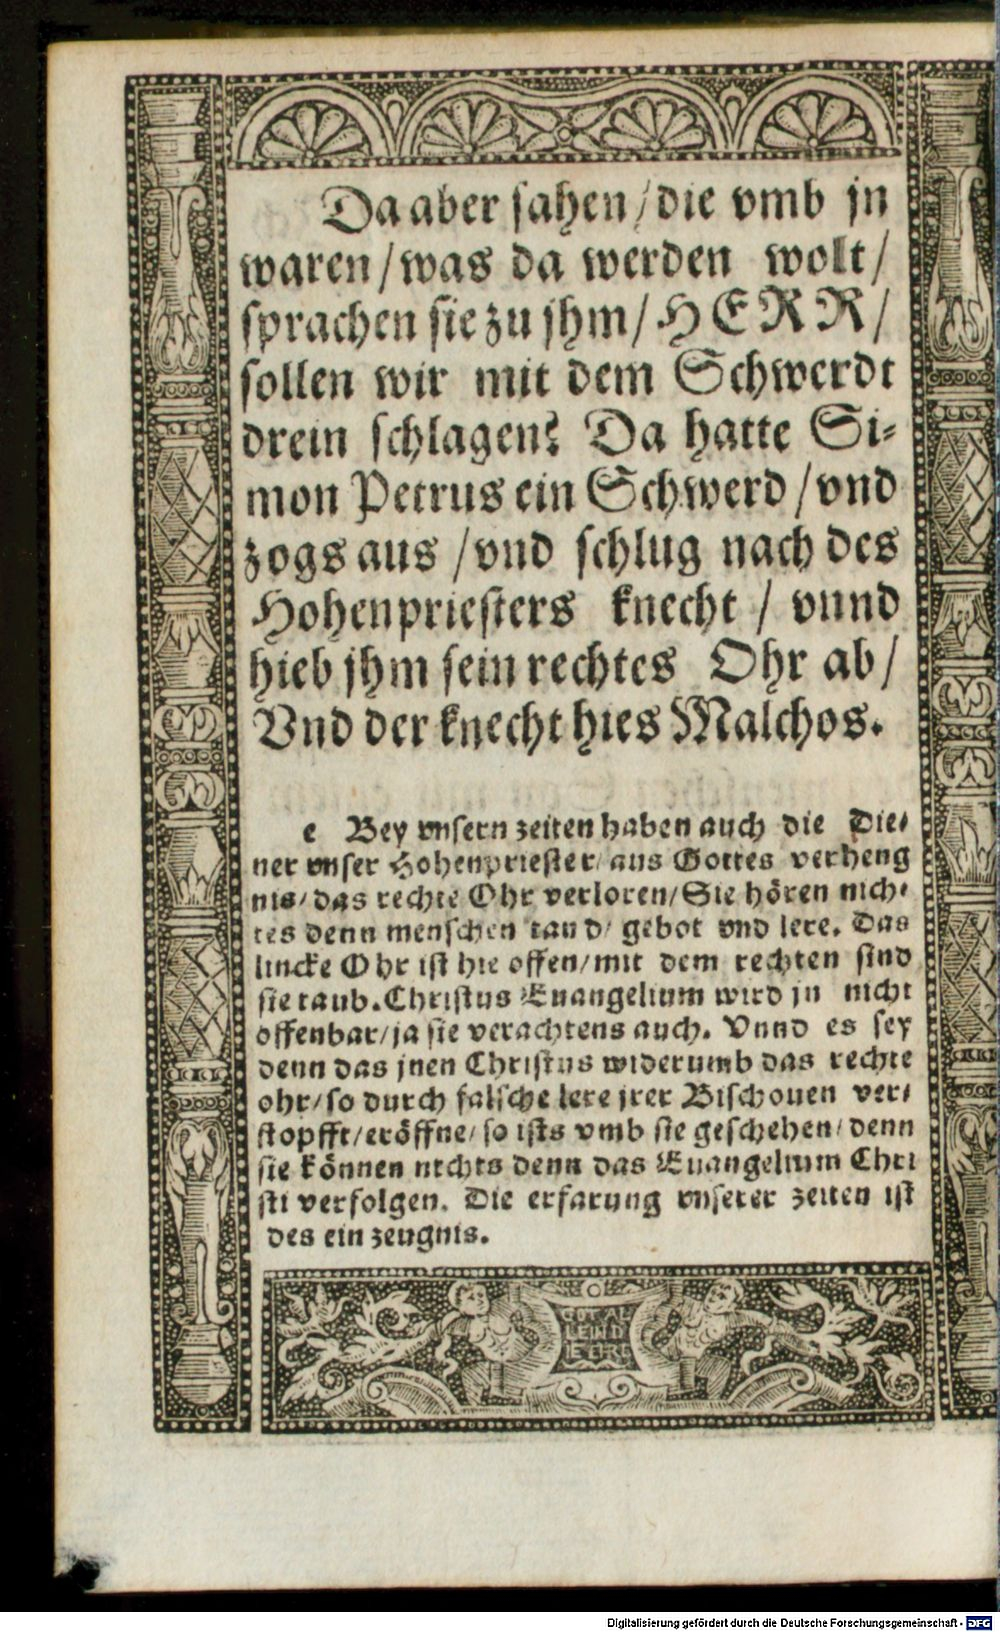 Da aber sahen / die vmb jn
waren / was da werden wolt /
sprachen sie zu jhm / HERR /
sollen wir mit dem Schwerdt
drein schlagen? Da hatte Si=
mon Petrus ein Schwerd / vnd
zogs aus / vnd schlug nach des
Hohenpriesters knecht / vnnd
hieb jhm sein rechtes Ohr ab /
Vnd der knecht hies Malchos.
e Bey vnsern zeiten haben auch die Die=
ner vnser Hohenpriester / aus Gottes verheng
nis / das rechte Ohr verloren / Sie hören nich=
tes denn menschen tand / gebot vnd lere. Das
lincke Ohr ist hie offen / mit dem rechten sind
sie taub. Christus Euangelium wird jn nicht
offenbar / ja sie verachtens auch. Vnnd es sey
denn das jnen Christus widerumb das rechte
ohr / so durch falsche lere jrer Bischouen ver=
stopfft / eröffne / so ists vmb sie geschehen / denn
sie können nichts denn das Euangelium Chri
sti verfolgen. Die erfarung vnserer zeiten ist
des ein zeugnis.
GOT AL
LEIN D
IE ERE
Digitalisierung gefördert durch die Deutsche Forschungsgemeinschaft - DFG